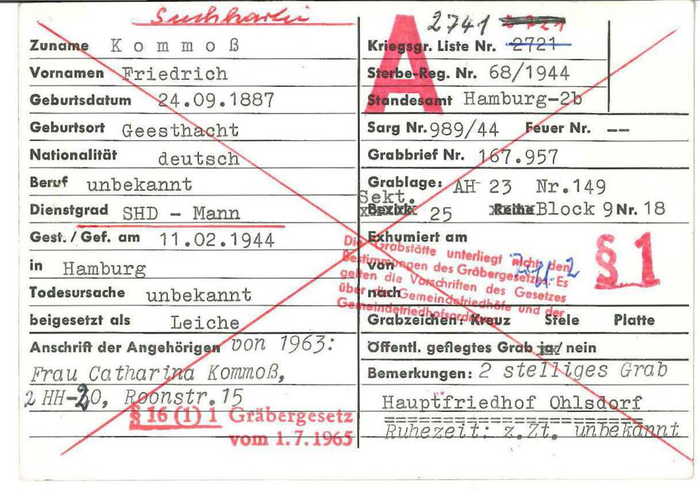 Suchkartei
Zuname Kommoß
Vornamen Friedrich
Geburtsdatum 24.09.1887
Geburtsort Geesthacht
Nationalität deutsch
Beruf unbekannt
Dienstgrad SHD - Mann
Gest./Gef. am 11.02.1944
in Hamburg
Todesursache unbekannt
beigesetzt als Leiche
Anschrift der Angehörigen von 1963:
Frau Catharina Kommoß,
2 HH-20, Roonstr.15
§ 16 (1) 1 Gräbergesetz
vom 1.7.1965
A
2741
Kriegsgr. Liste Nr. 2721
Sterbe-Reg. Nr. 68/1944
Standesamt Hamburg-2b
Sarg Nr. 989/44 Feuer Nr. --
Grabbrief Nr. 167.957
Grablage: AH 23 Nr.149
Sekt.
Bezirk 25 Reihe Block 9 Nr. 18
Exhumiert am
von
nach
Die Grabstätte unterliegt nicht den
Bestimmungen des Gräbergesetzes. Es
gelten die Vorschriften des Gesetzes
über die Gemeindefriedhöfe und der
Gemeindefriedhofsordnung
§ 1
Grabzeichen: Kreuz Stele Platte
Öffentl. gepflegtes Grab ja/nein
Bemerkungen: 2 stelliges Grab
Hauptfriedhof Ohlsdorf
Ruhezeit: z.Zt. unbekannt